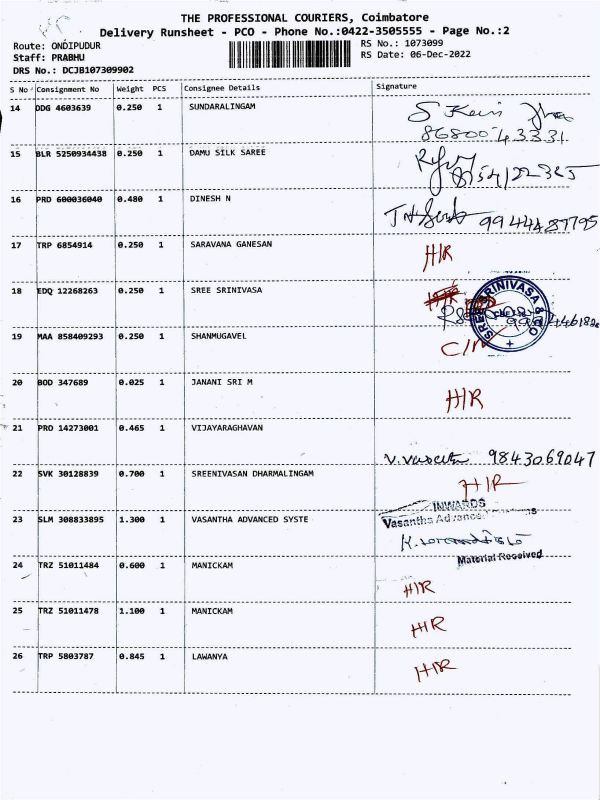 THE PROFESSIONAL COURIERS, Coimbatore
Delivery Runsheet - PCO - Phone No.:0422-3505555 - Page No.:2
Route: ONDIPUDUR RS No.: 1073099
Staff: PRABHU RS Date: 06-Dec-2022
DRS No.: DCJB107309902
S No Consignment No Weight PCS Consignee Details Signature
14 DDG 4603639 0.250 1 SUNDARALINGAM
86800 43331
15 BLR 5250934438 0.250 1 DAMU SILK SAREE
16 PRD 600036040 0.480 1 DINESH N
9944487795
17 TRP 6854914 0.250 1 SARAVANA GANESAN H/R
18 EDQ 12268263 0.250 1 SREE SRINIVASA
SREE SRINIVASA & CO
19 MAA 858409293 0.250 1 SHANMUGAVEL
20 BOD 347689 0.025 1 JANANI SRI M H/R
21 PRO 14273001 0.465 1 VIJAYARAGHAVAN
9843069047
22 SVK 30128839 0.700 1 SREENIVASAN DHARMALINGAM H/R
INWARDS
23 SLM 308833895 1.300 1 VASANTHA ADVANCED SYSTE Vasantha
Material Received
24 TRZ 51011484 0.600 1 MANICKAM H/R
25 TRZ 51011478 1.100 1 MANICKAM H/R
26 TRP 5803787 0.845 1 LAWANYA H/R